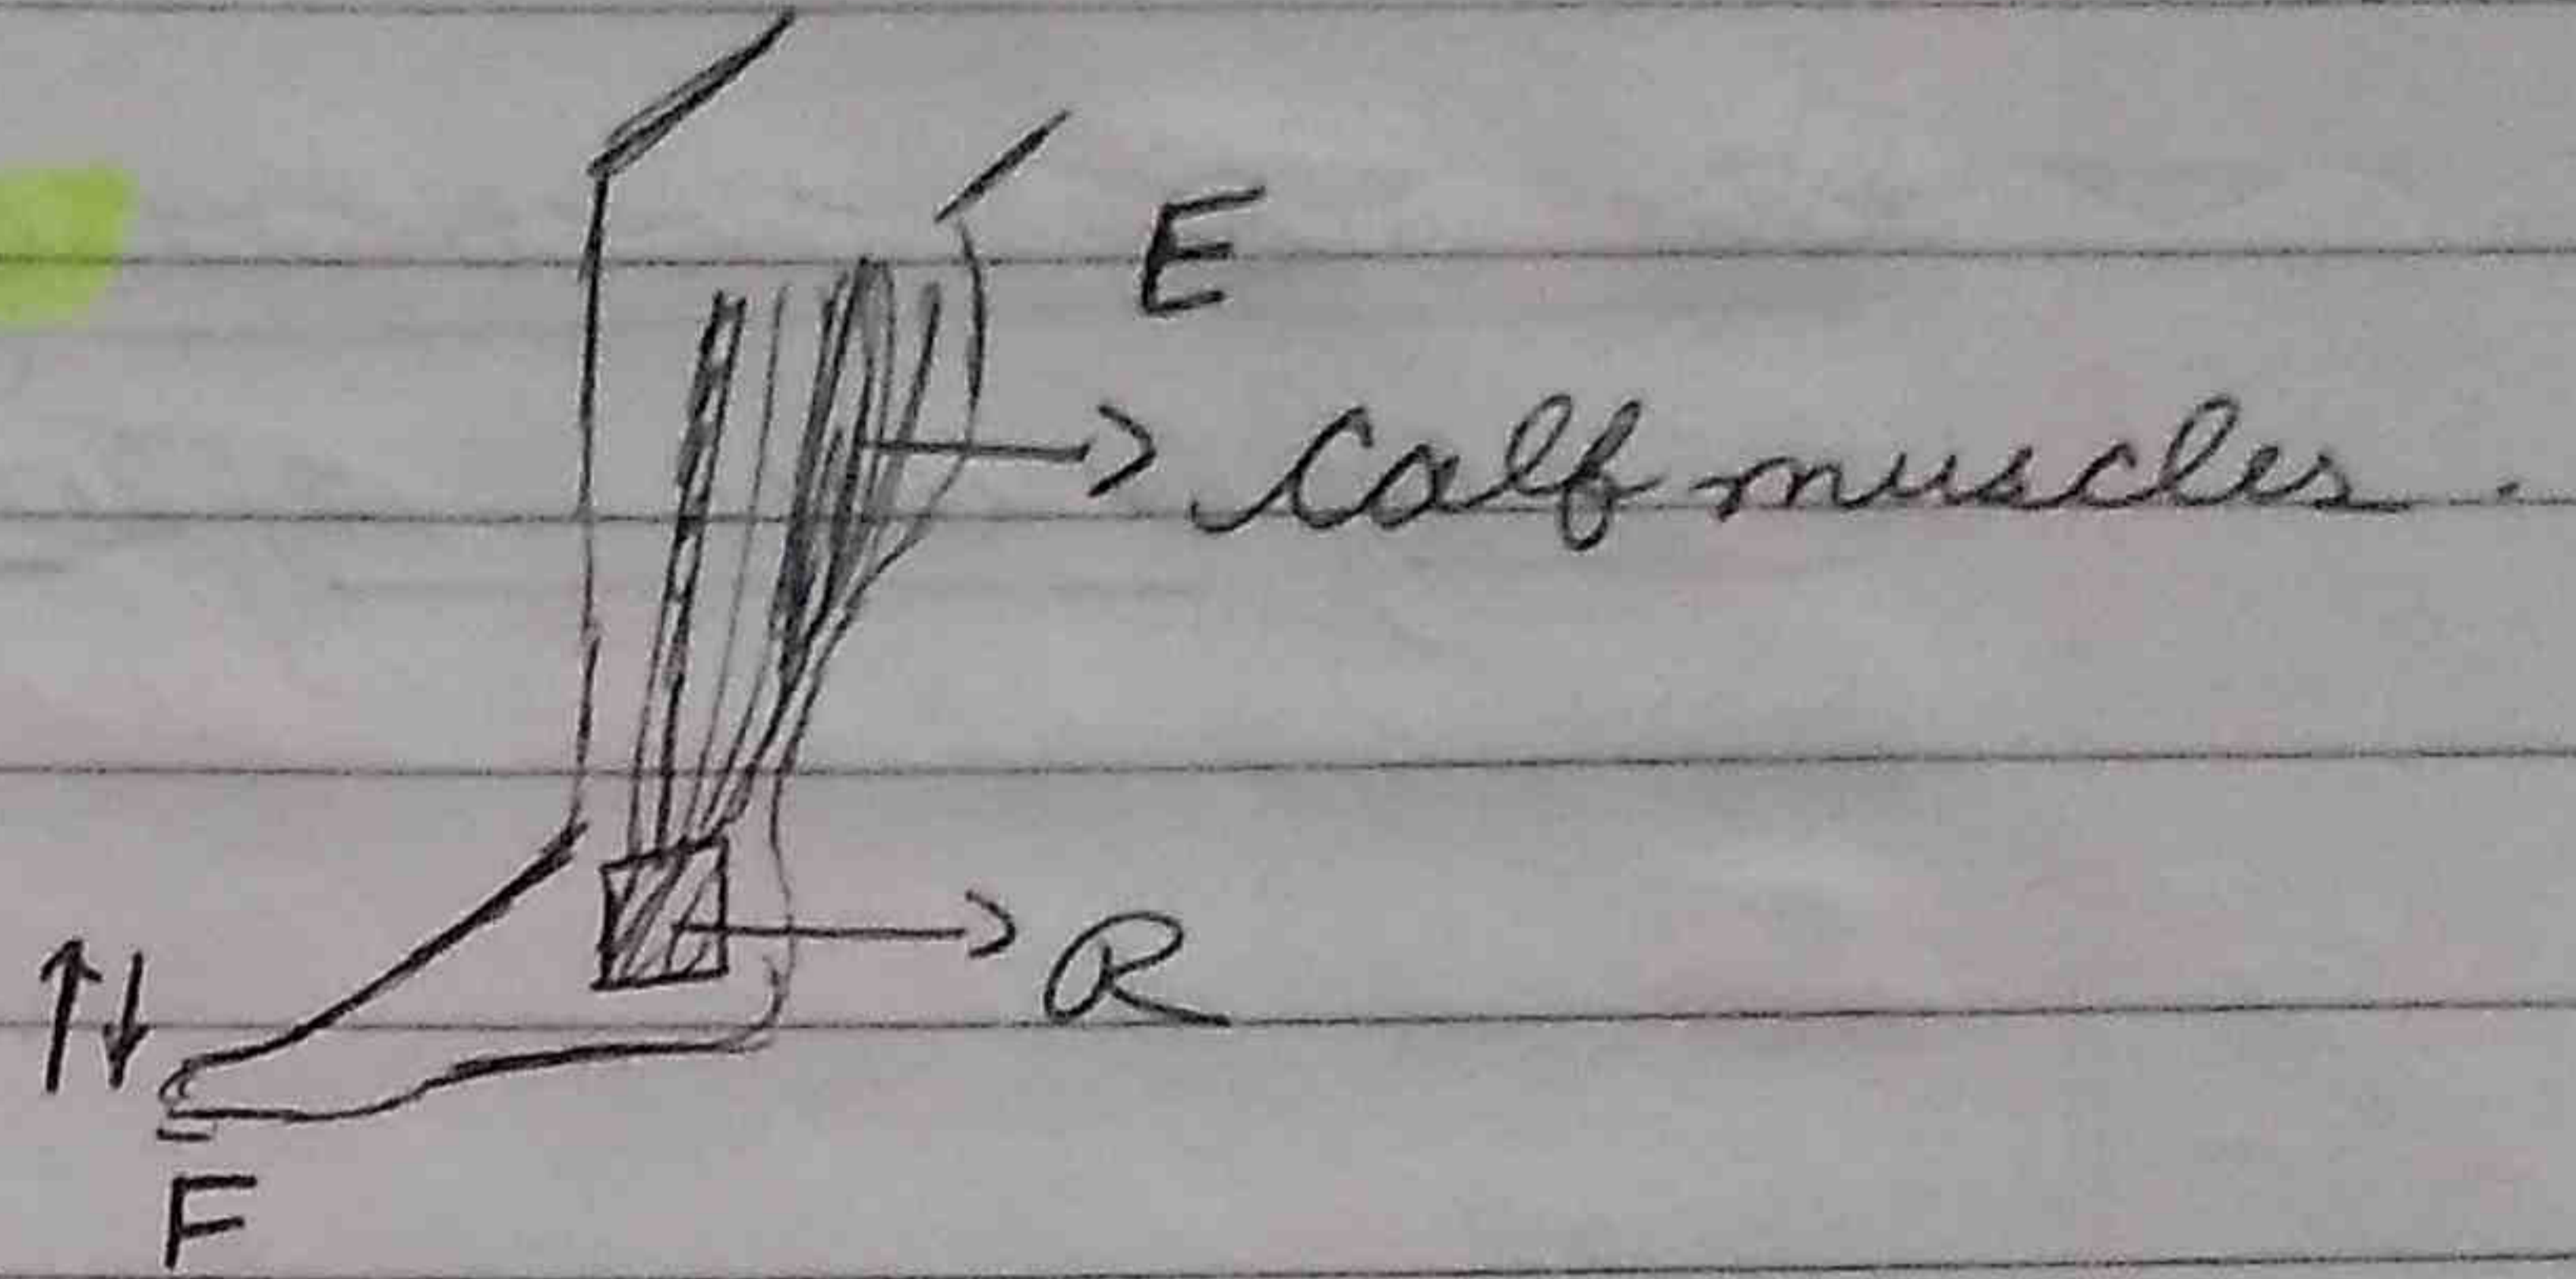 E
Calf muscles.
R
F